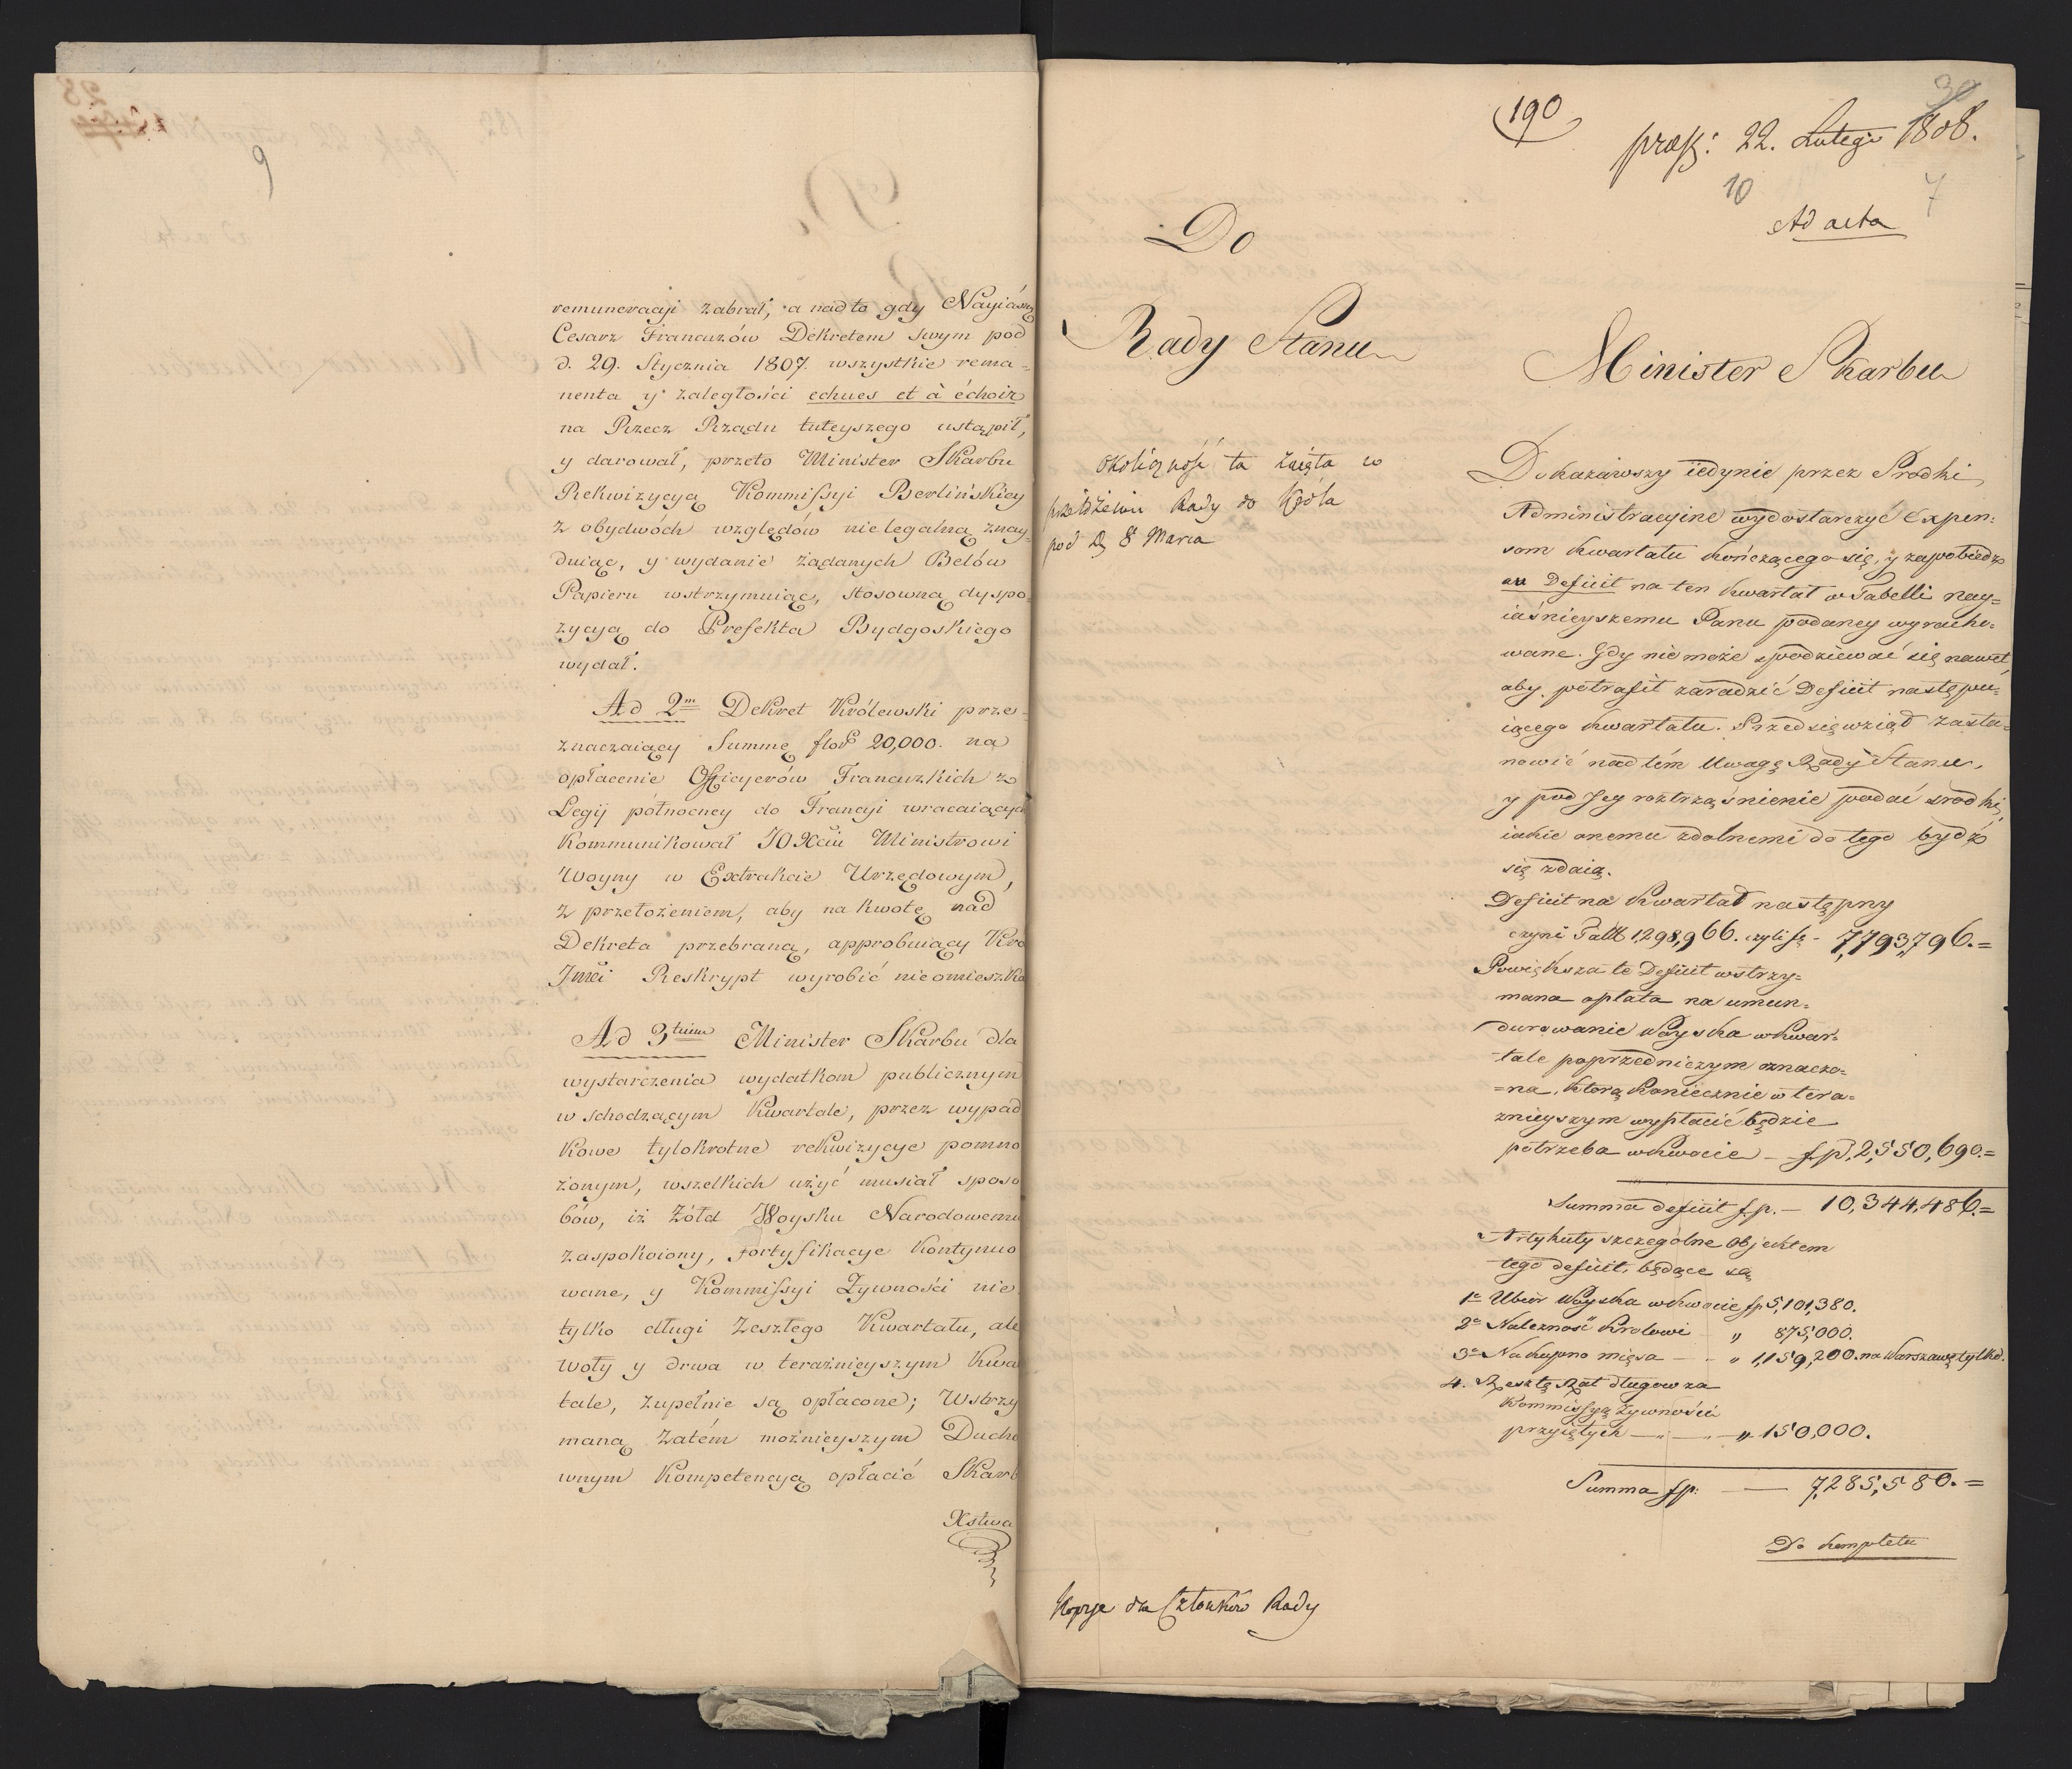 9
remuneracyi zabrał, a nadto gdy Nayiaśn
Cesarz Francuzów Dekretem swym pod
d. 29. Stycznia 1807. wszystkie rema=
nenta y zaległości echues et à échoir
na Rzecz Rządu tuteyszego ustąpił,
y darował, przeto Minister Skarbu
Rekwizycyą Kommissyi Berlińskiey
z obydwóch względów nielegalną znay=
duiąc, y wydanie żądanych Belów
Papieru wstrzymuiąc, stosowną dyspo=
zycyą do Prefekta Bydgoskiego
wydał.
Ad 2m Dekret Królewski prze=
znaczaiący Summę flor 20,000. na
opłacenie Officyerów Francuzkich z
Legij północney do Francyi wracaiących
Kommunikował JO Xciu Ministrowi
Woyny w Extrakcie Urzędowym,
z przełożeniem, aby na kwotę nad
Dekreta przebraną, approbuiący Kró
Jmći Reskrypt wyrobić nieomieszka
Ad 3tium Minister Skarbu dla
wystarczenia wydatkom publicznym
w schodzącym Kwartale, przez wypad
kowe tylokrotne rekwizycye pomno
żonym, wszelkich użyć musiał sposo
bów, iż Żołd Woysku Narodowemu
zaspokoiony, fortyfikacye kontynuo
wane, y Kommissyi Żywności nie
tylko długi Zeszłego Kwartału, ale
woły y drwa w teraźnieyszym Kwa
tale, zupełnie są opłacone; Wstrzy
maną zatém możnieyszym Ducho
wnym Kompetencyą opłacić Skarb
Xstwa
190
30
præs: 22. Lutego 1808.
10
7
Ad acta
Do
Rady Stanu
Minister Skarbu
Okoliczność ta zaięta w
przełożeniu Rady do Króla
pod D. 8 Marca
Dokazawszy iedynie przez Srodki
Administracyine wydostarczyć Expen:
som kwartału kończącego się, y zapobiedz
Deficit na ten kwartał w Tabelli nay=
iaśnieyszemu Panu podaney wyracho=
wane. Gdy nie może spodziewać się nawet
aby potrafił zaradzić Deficit następu=
iącego kwartału. Przedsięwziął zasta=
nowić nad tém Uwagę Rady Stanu,
y pod Jey roztrząśnienie podać srodki,
iakie onemu zdolnemi do tego bydź
się zdaią.
Deficit na Kwartał następny
czyni Tall 1,298,966. czyli fp - 7,793,796.=
Powiększa te Deficit wstrzy=
mana opłata na umun=
durowanie Woyska w kwar=
tale poprzedniczym oznaczo=
=na, którą koniecznie w tera=
znieyszym wypłacić będzie
potrzeba w kwocie — fp. 2,550,690.=
Summa deficit fp. — 10,344,486.=
Artykuły szczególne Objektem
tego deficit, będące są
1e Ubiór Woyska w kwocie fp 5,101,380.
2e Należność Królowi „ 875,000.
3e Na kupno mięsa — - „ 1,159,200. na Warszawę tylko.
4. Resztę Rat długów za
Kommissyą Żywności
przyiętych — „ 150,000.
Summa fp: — 7,285,580.=
Do kompletu
Kopije dla Członków Rady